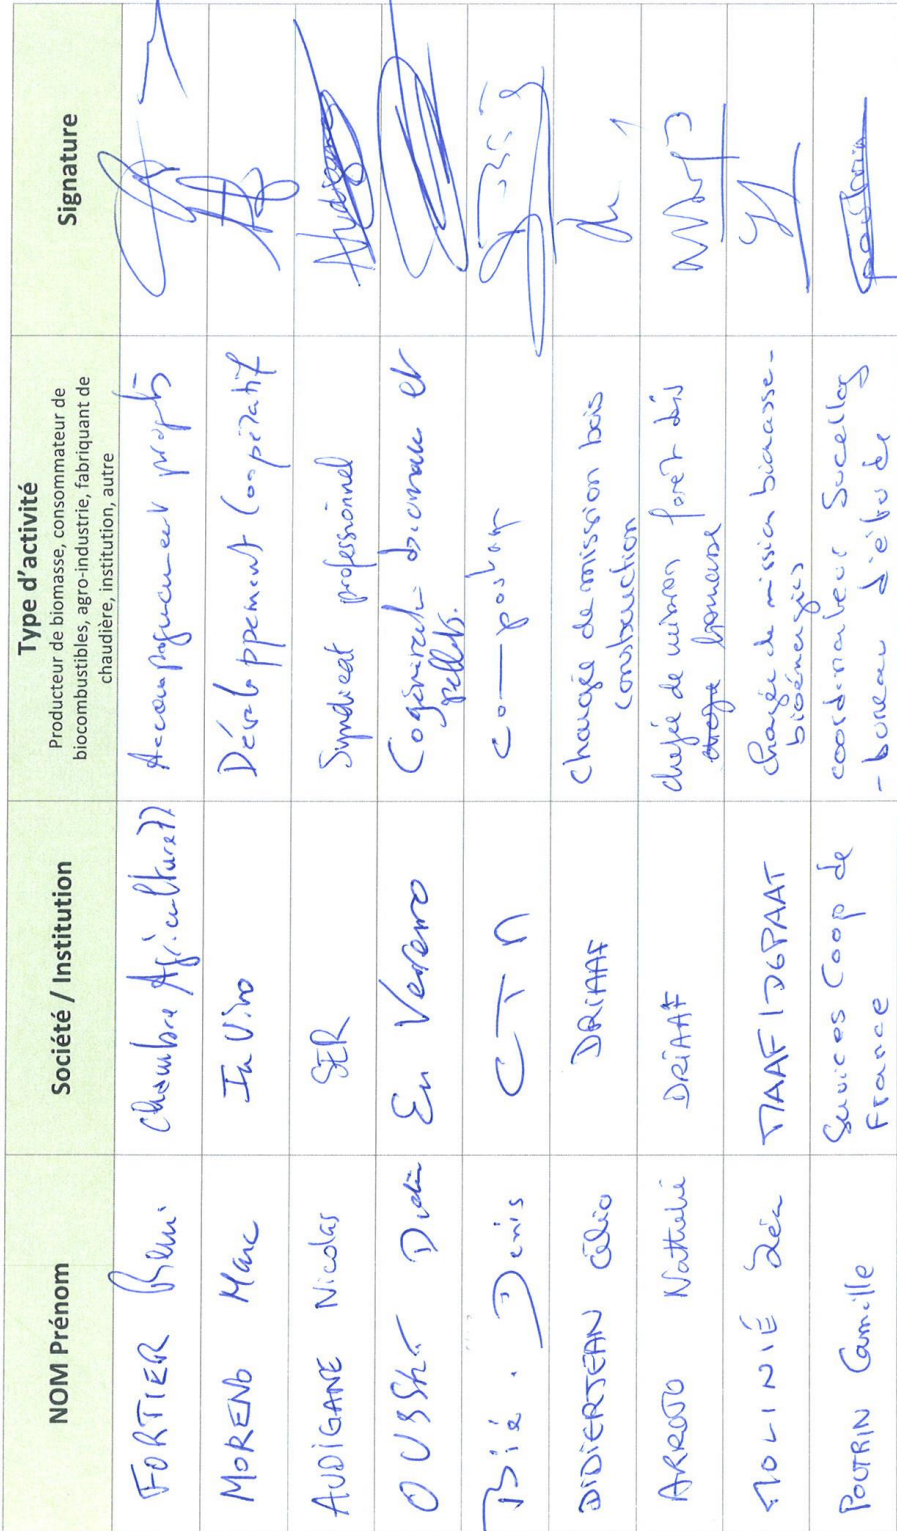 NOM Prénom
Société / Institution
Type d'activité
Producteur de biomasse, consommateur de
biocombustibles, agro-industrie, fabriquant de
chaudière, institution, autre
Signature
FORTIER Rémi
Chambre Agriculture 77
Accompagnement projets
MORENO Marc
In Vivo
Développement Coopératif
AUDIGANE Nicolas
SER
Syndicat professionnel
Audigane
Didier
En
Cogénération biomasse et
pellets.
Bié. Denis
CTA
compostage
DIDIERJEAN Célia
DRIAAF
Chargée de mission bois
construction
ARROJO Nathalie
DRIAAF
chefée de mission forêt bois
biomasse
MOLINIÉ Léa
MAAF/DGPAAT
chargée de mission biomasse-
bioénergies
POUTRIN Camille
Services Coop de
France
coordinateur Sucellog
- bureau d'étude
poutrin